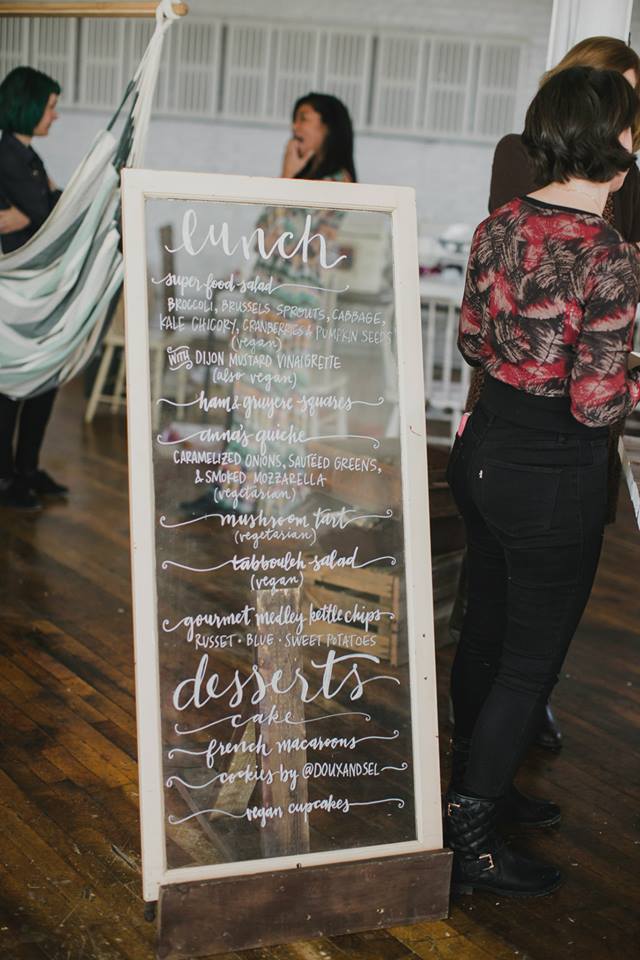 lunch
super food salad
BROCCOLI, BRUSSELS SPROUTS, CABBAGE,
KALE CHICORY, CRANBERRIES & PUMPKIN SEEDS
(vegan)
WITH DIJON MUSTARD VINAIGRETTE
(also vegan)
ham & gruyere squares
anna's quiche
CARAMELIZED ONIONS, SAUTÉED GREENS,
& SMOKED MOZZARELLA
(vegetarian)
mushroom tart
(vegetarian)
tabbouleh salad
(vegan)
gourmet medley kettle chips
RUSSET • BLUE • SWEET POTATOES
desserts
cake
french macaroons
cookies by @DOUXANDSEL
vegan cupcakes